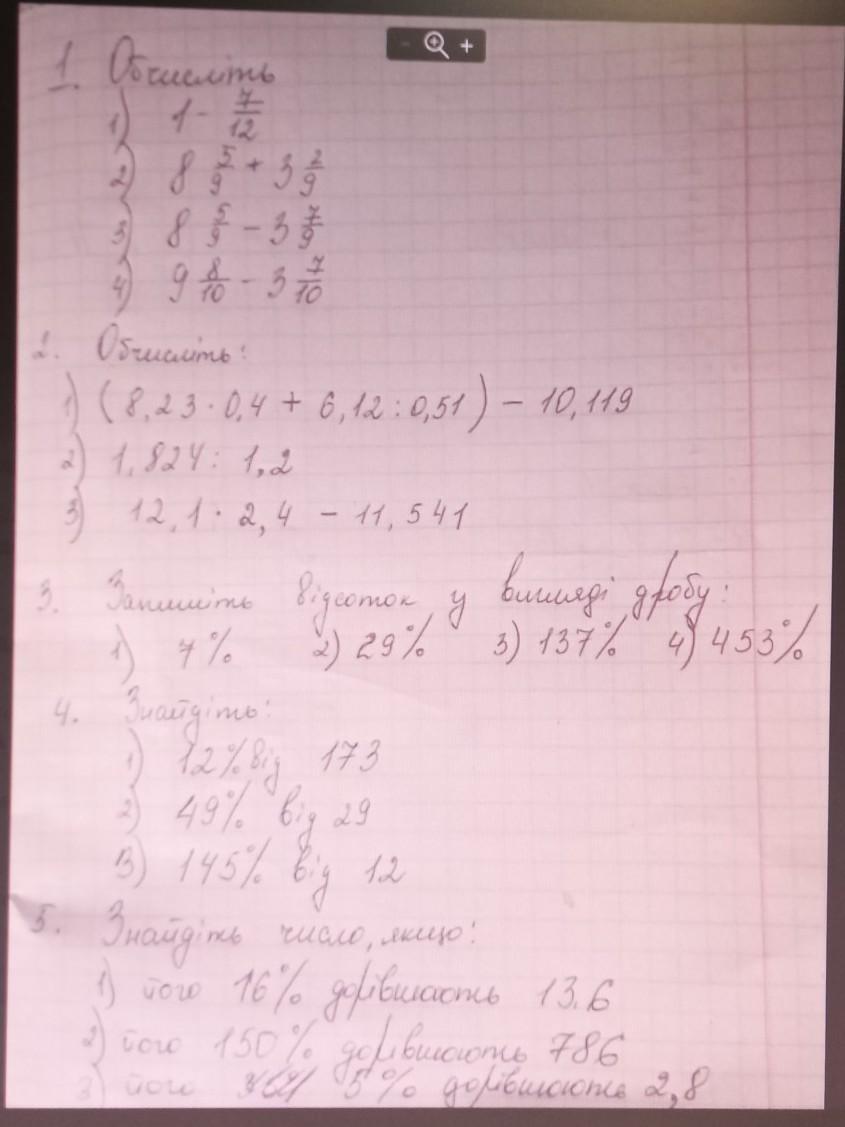 1. Обчисліть
1) 1 - 7/12
2) 8 5/9 + 3 2/9
3) 8 5/9 - 3 7/9
4) 9 8/10 - 3 7/10
2. Обчисліть:
1) (8,23 · 0,4 + 6,12 : 0,51) - 10,119
2) 1,824 : 1,2
3) 12,1 · 2,4 - 11,541
3. Запишіть відсоток у вигляді дробу:
1) 7% 2) 29% 3) 137% 4) 453%
4. Знайдіть:
1) 12% від 173
2) 49% від 29
3) 145% від 12
5. Знайдіть число, якщо:
1) його 16% дорівнюють 13.6
2) його 150% дорівнюють 786
3) його 5% дорівнюють 2,8